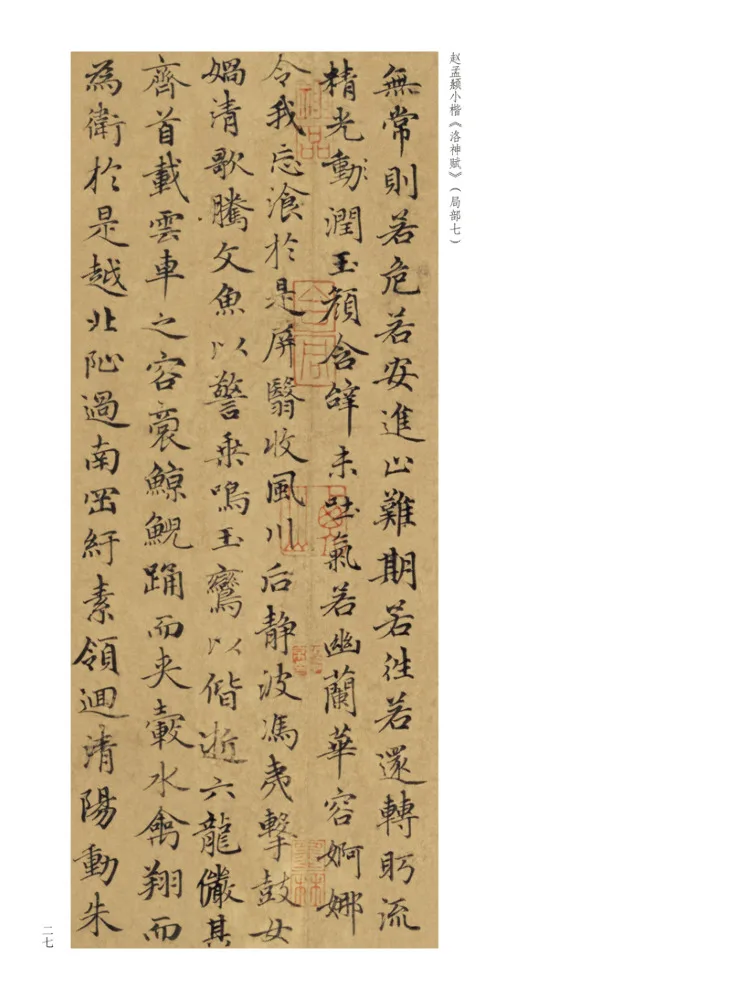 赵孟頫小楷《洛神赋》（局部七）
無常則若危若安進止難期若往若還轉眄流
精光動潤玉顏含辭未吐氣若幽蘭華容婀娜
令我忘飡於是屏翳收風川后静波馮夷擊鼓女
媧清歌騰文魚以警乗鳴玉鸞以偕逝六龍儼其
齊首載雲車之容裔鯨鯢踊而夾轂水禽翔而
為衛於是越北沚過南岡紆素領迴清陽動朱
二七